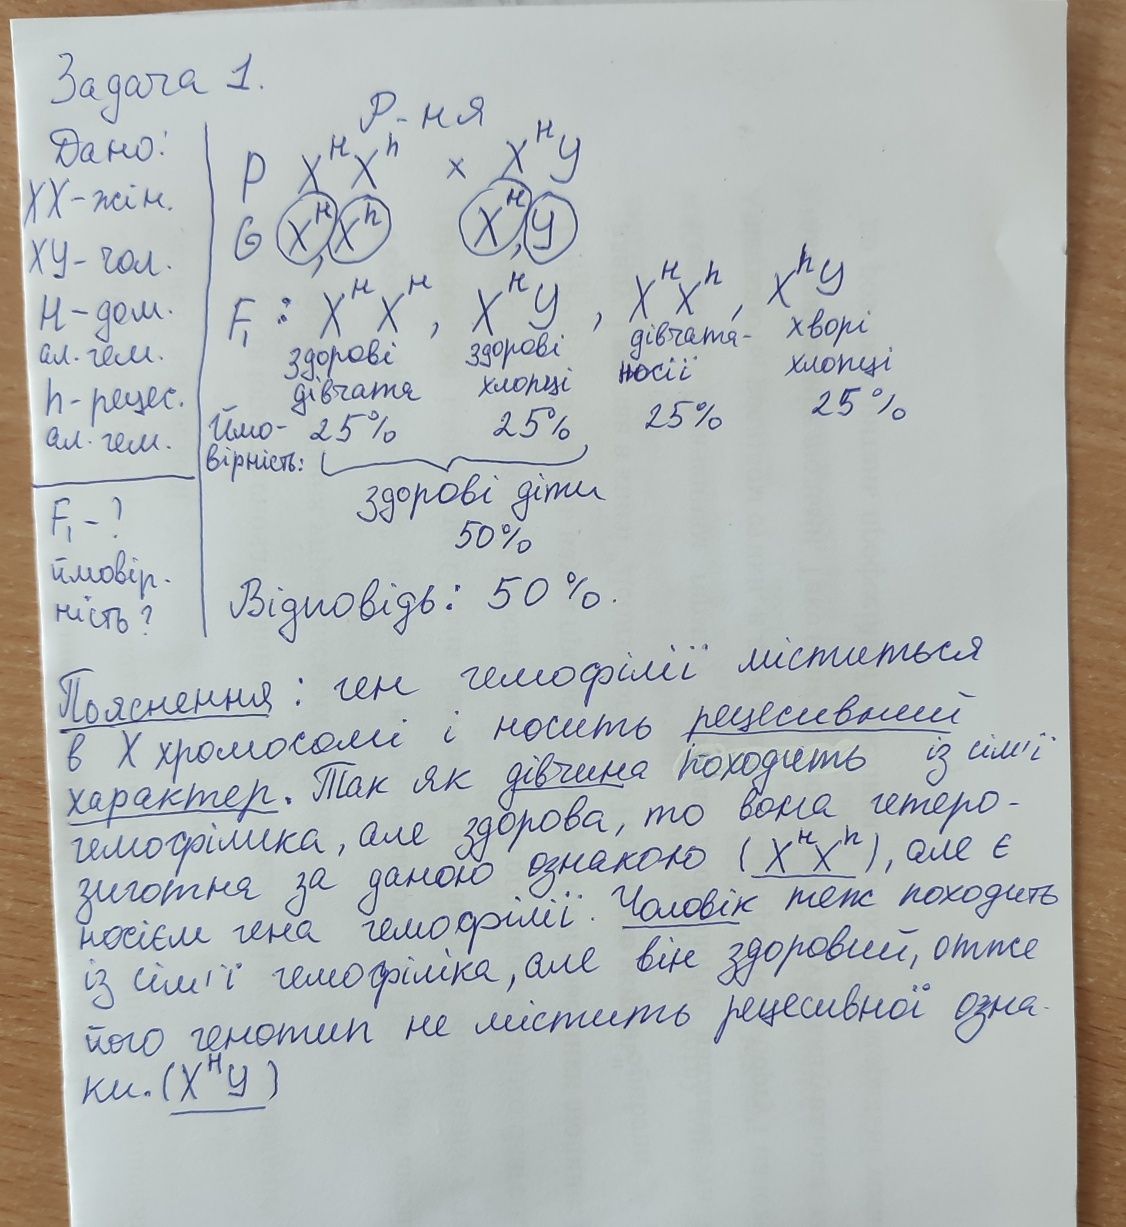 Задача 1.
Дано:
XX-жін.
XY-чол.
H-дом.
ал. гем.
h-рецес.
ал. гем.
F₁-?
ймовір-
ність?
Р-ня
P XᴴXʰ × XᴴY
G Xᴴ, Xʰ Xᴴ, Y
F₁: XᴴXᴴ, XᴴY, XᴴXʰ, XʰY
здорові дівчата здорові хлопці дівчата-носії хворі хлопці
Ймо-вірність: 25% 25% 25% 25%
здорові діти
50%
Відповідь: 50%.
Пояснення: ген гемофілії міститься
в X хромосомі і носить рецесивний
характер. Так як дівчина походить із сім'ї
гемофіліка, але здорова, то вона гетеро-
зиготна за даною ознакою (XᴴXʰ), але є
носієм гена гемофілії. Чоловік теж походить
із сім'ї гемофіліка, але він здоровий, отже
його генотип не містить рецесивної озна-
ки. (XᴴY)